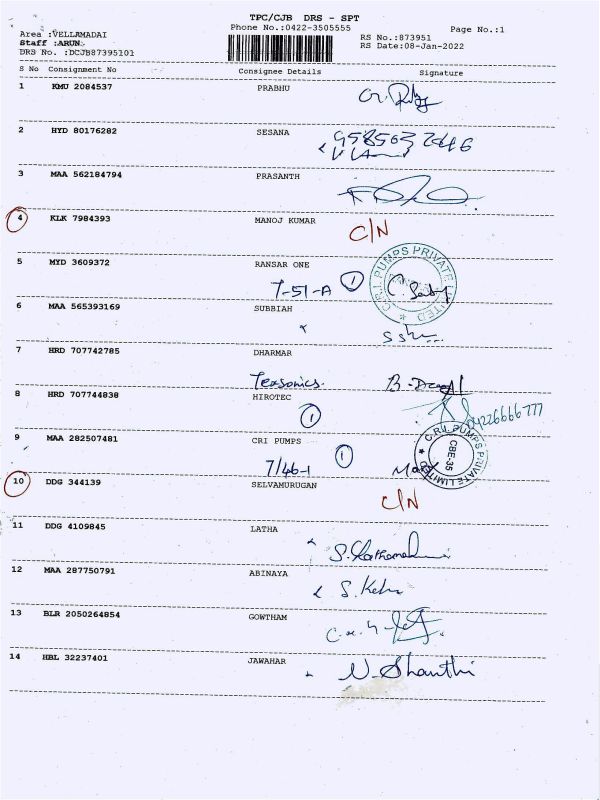 TPC/CJB DRS - SPT
Phone No.:0422-3505555
Page No.:1
Area :VELLAMADAI
Staff :ARUN
DRS No. :DCJB87395101
RS No.:873951
RS Date:08-Jan-2022
S No Consignment No Consignee Details Signature
1 KMU 2084537 PRABHU
2 HYD 80176282 SESANA
3 MAA 562184794 PRASANTH
4 KLK 7984393 MANOJ KUMAR
C/N
5 MYD 3609372 RANSAR ONE
7-51-A 1
C.R.I. PUMPS PRIVATE LIMITED
6 MAA 565393169 SUBBIAH
7 HRD 707742785 DHARMAR
Texsonics.
8 HRD 707744838 HIROTEC
1
04226666777
9 MAA 282507481 CRI PUMPS
7/46-1 1
C.R.I. PUMPS PRIVATE LIMITED
CBE-35
10 DDG 344139 SELVAMURUGAN
C/N
11 DDG 4109845 LATHA
12 MAA 287750791 ABINAYA
13 BLR 2050264854 GOWTHAM
14 HBL 32237401 JAWAHAR
N. Shanthi